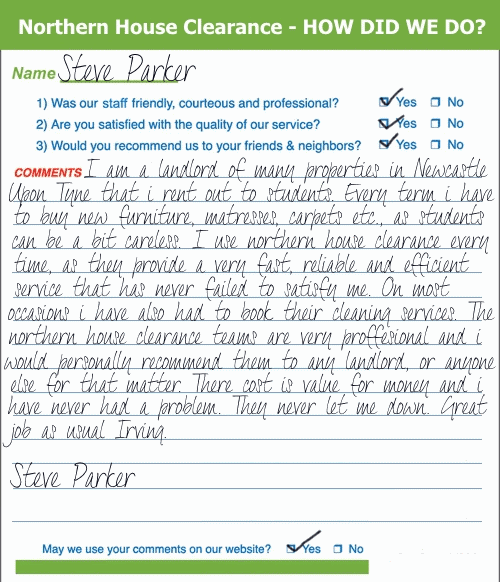 Northern House Clearance - HOW DID WE DO?
Name Steve Parker
1) Was our staff friendly, courteous and professional? Yes No
2) Are you satisfied with the quality of our service? Yes No
3) Would you recommend us to your friends & neighbors? Yes No
COMMENTS I am a landlord of many properties in Newcastle
Upon Tyne that i rent out to students. Every term i have
to buy new furniture, matresses, carpets etc., as students
can be a bit careless. I use northern house clearance every
time, as they provide a very fast, reliable and efficient
service that has never failed to satisfy me. On most
occasions i have also had to book their cleaning services. The
northern house clearance teams are very proffesional and i
would personally recommend them to any landlord, or anyone
else for that matter. There cost is value for money and i
have never had a problem. They never let me down. Great
job as usual Irving.
Steve Parker
May we use your comments on our website? Yes No